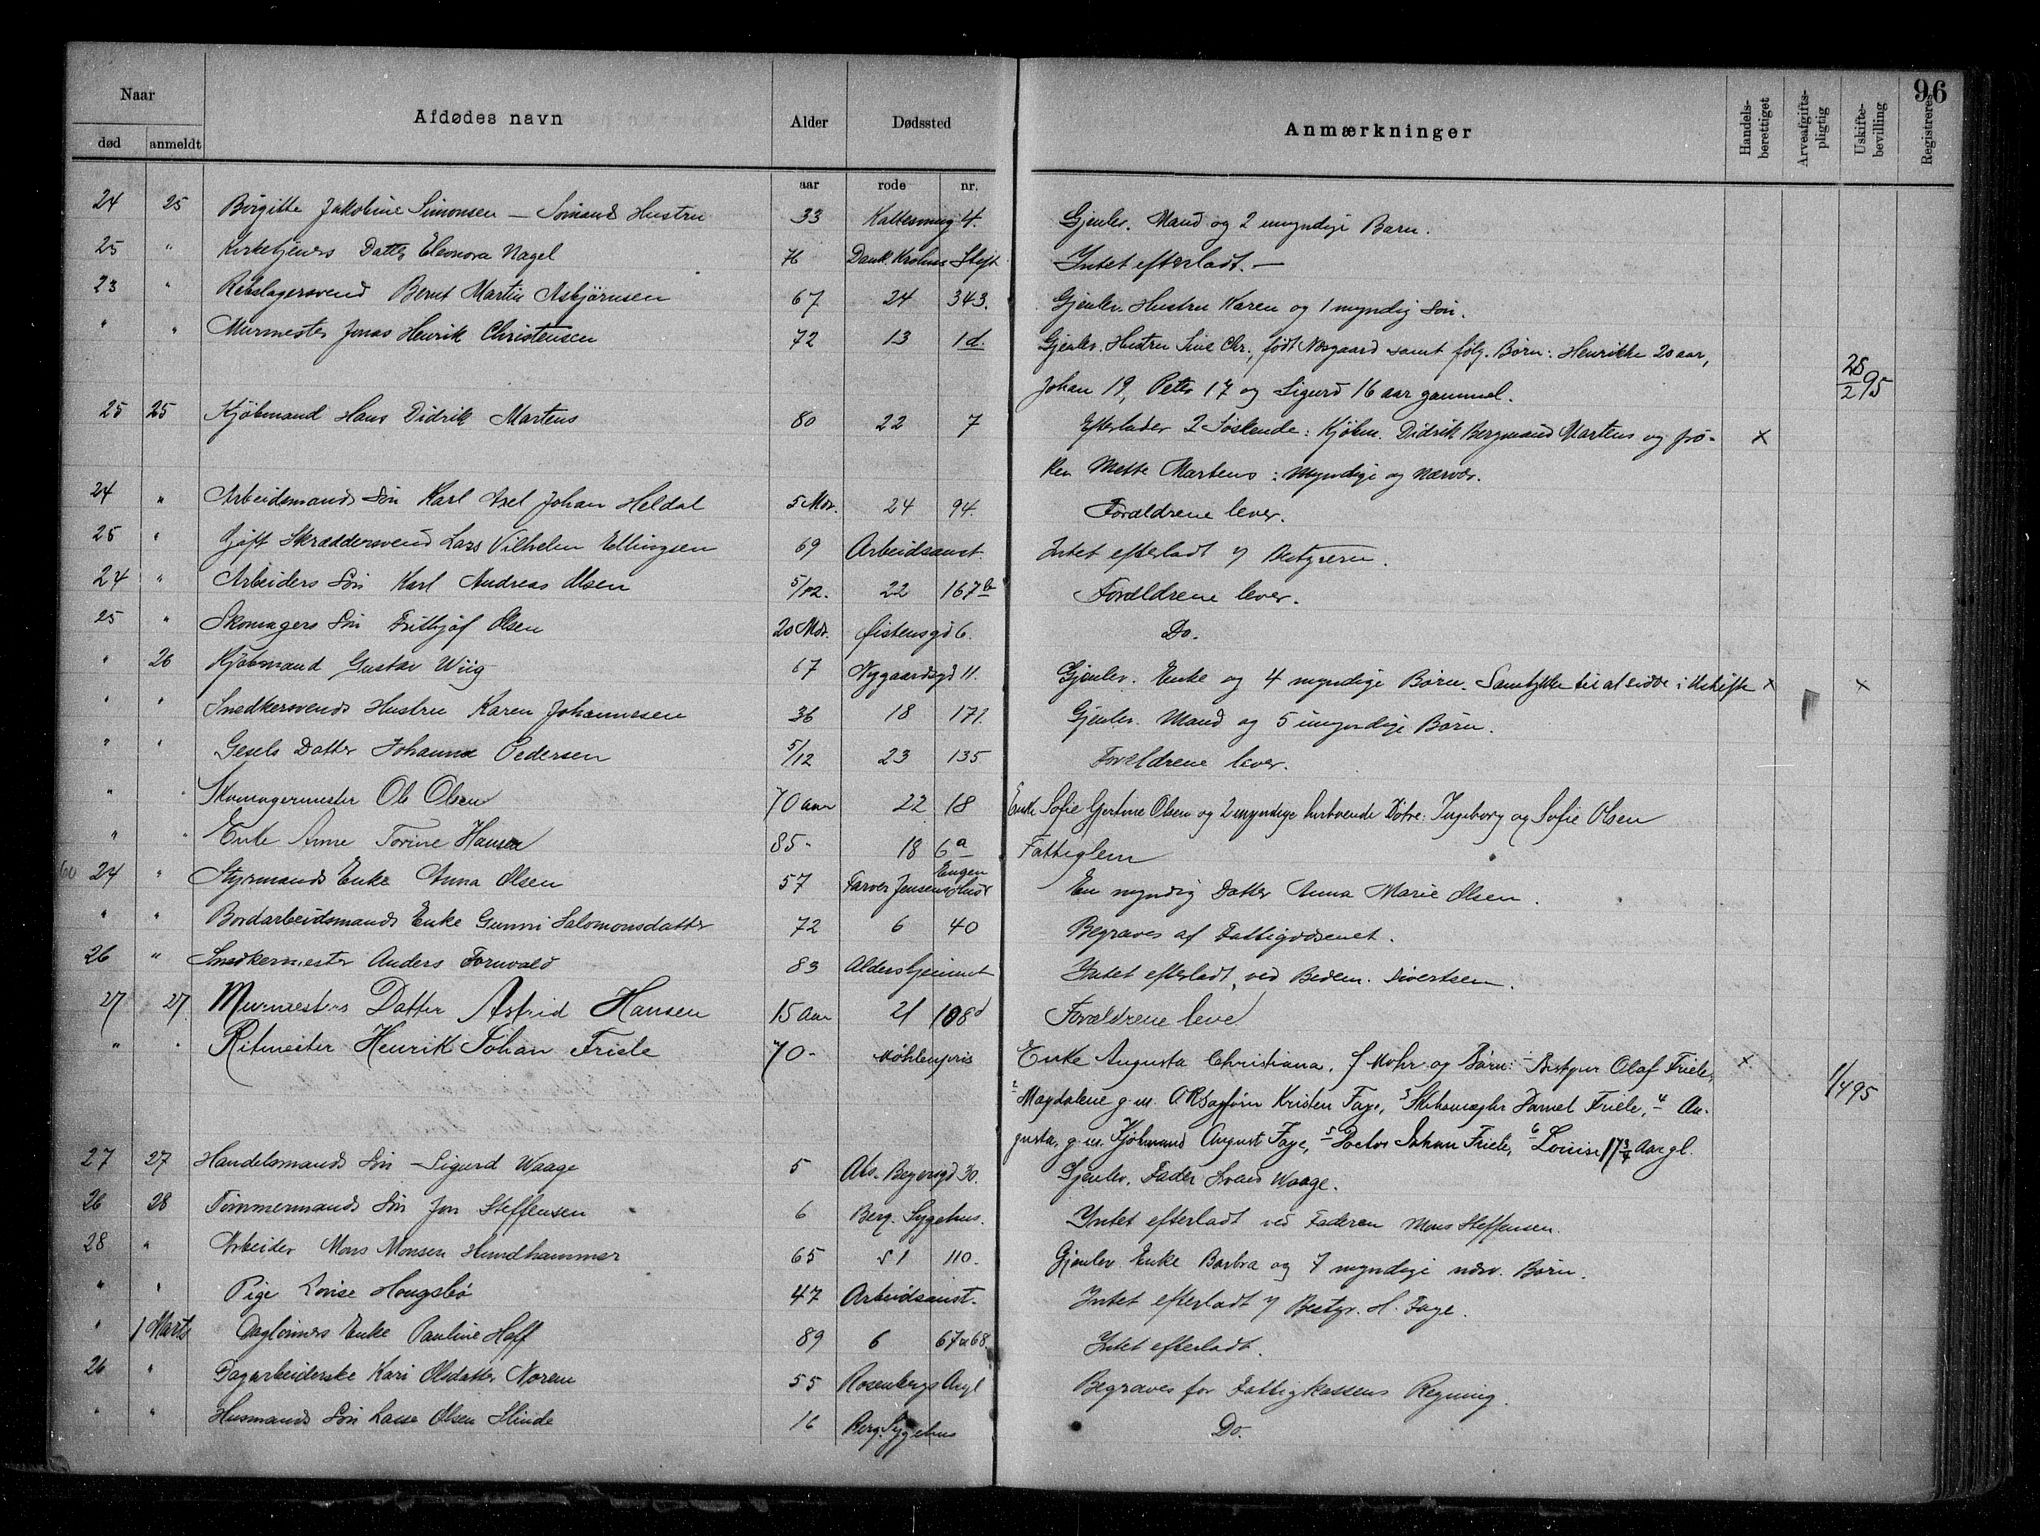 96
Naar
Afdødes navn
Alder
Dødssted
Anmærkninger
Handels-berettiget
Arveafgifts-pligtig
Uskifte-bevilling
Registreres
død anmeldt
aar rode nr.
24 25 Birgitte Jakobine Simonsen — Sømands Hustru 33 4. Gjenlev. Mand og 2 umyndige Barn.
25 " Kirketjeners Datter Eleonora Nagel 76 Dank. Krohns Stift Intet efterladt. —
23 " Rebslagersvend Bernt Martin Asbjørnsen 67 24 343. Gjenlev. Hustru Karen og 1 myndig Søn.
" " Murmester Jonas Henrik Christensen 72 13 1d. Gjenlev. Hustru Sine Chr., født Nøsgaard samt følg. Børn: Henrikke 20 aar,
Johan 19, Peter 17 og Sigurd 16 aar gammel. 28/2 95
25 25 Kjøbmand Hans Didrik Martens 80 22 7 Efterlader 2 Søskende: Kjøbm. Didrik Bergmand Martens og frø- x
ken Mette Martens: myndige og nærvær.
24 " Arbeidsmands Søn Karl Axel Johan Heldal 5 Mdr. 24 94. Forældrene lever.
25 " Gift Skræddersvend Lars Vilhelm Ellingsen 69 Arbeidsanst. Intet efterladt Bestyreren.
24 " Arbeiders Søn Karl Andreas Olsen 5/12. 22 167b Forældrene lever.
25 " Skomagers Søn Frithjof Olsen 20 Mdr. Øistensgd 6. Do.
" 26 Kjøbmand Gustav Wiig 67 Nygaardsgd 11. Gjenlev. Enke og 4 myndige Børn. Samtykke til at sidde i Uskifte x x
" " Snedkersvends Hustru Karen Johannesen 36 18 171. Gjenlev. Mand og 5 umyndige Børn.
" " Gesels Datter Johanna Pedersen 5/12 23 135 Forældrene lever.
" " Skomagermester Ole Olsen 70 aar 22 18 Enke Sofie Gjertine Olsen og 2 myndige Døtre: Ingeborg og Sofie Olsen
" " Enke Anne Torine Hansen 85- 18 6a Fattiglem
60 24 " Styrmands Enke Anna Olsen 57 Farver Jensens Engen Hus En myndig Datter Anna Marie Olsen.
" " Bordarbeidsmands Enke Gunni Salomonsdatter 72 6 40 Begraves af Fattigvæsenet.
26 " Snedkermester Anders Fornvald 83 Aldershjemmet Intet efterladt, ved Bedem. Sivertsen.
27 27. Murmesters Datter Astrid Hansen 15 Aar 21 108d Forældrene leve
" " Ritmester Henrik Johan Friele 70- Møhlenpris Enke Augusta Christiana, f Mohr og Børn: Bestyrer Olaf Friele, x.
2 Magdalene g.m. ORSagfører Kristen Faye, 3 Daniel Friele, 4 Au- 1/4 95
gusta, g.m. Kjøbmand August Faye, 5 Doctor Johan Friele, 6 Louise 17 3/4 Aar gl.
27 27 Handelsmands Søn — Sigurd Waage 5 Abs. Beyersgd 30. Gjenlev. Fader Svend Waage.
26 28 Tømmermands Søn Jon Steffensen 6 Berg. Sygehus. Intet efterladt ved Faderen Mons Steffensen.
28 " Arbeider Mons Monsen Hundhammer 65 51 110. Gjenlev. Enke Barbra og 7 myndige nærv. Børn.
" " Pige Lovise Hougsbø 47 Arbeidsanst. Intet efterladt Bestyr. H. Faye.
" 1 Marts Dagleiers Enke Pauline Hoff 89 6 67 a 68 Intet efterladt.
26 " Dagarbeiderske Kari Olsdatter Noren 55 Rosenbergs Asyl Begraves for Fattigkassens Regning.
" " Husmands Søn Lasse Olsen Slinde 16 Berg. Sygehus Do.